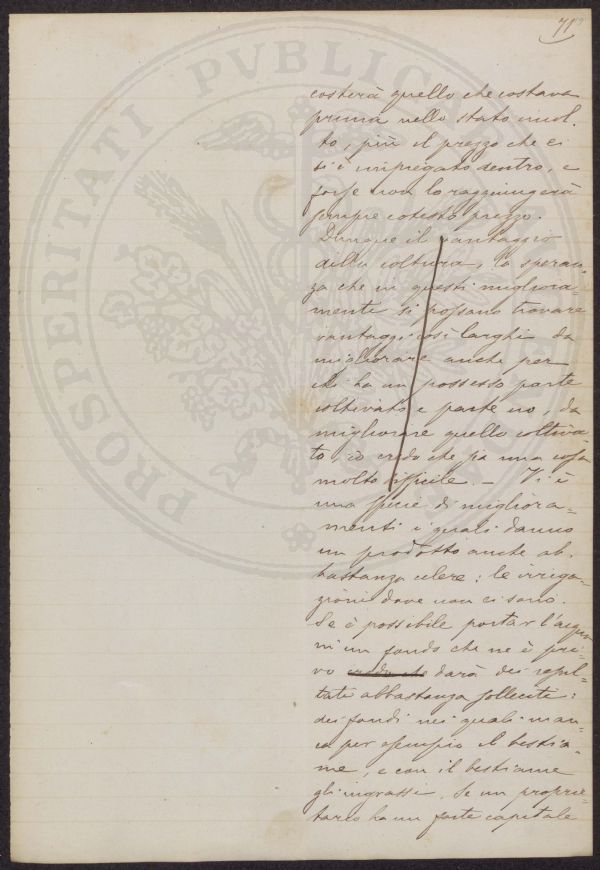 71
costerà quello che costava
prima nello stato incol-
to, più il prezzo che ci
si è impregato dentro, e
forse non lo raggiungerà
sempre cotesto prezzo.
Dunque il vantaggio
della coltura, la speran-
za che in questi migliora-
menti si possano trovare
vantaggi così larghi da
migliorare anche per
chi ha un possesso parte
coltivato e parte no, da
migliorare quello coltiva-
to, io credo che sia una cosa
molto difficile. — Vi è
una specie di migliora-
menti i quali danno
un prodotto anche ab-
bastanza celere: le irriga-
zioni dove non ci sono.
Se è possibile portar l'acqua
in un fondo che ne è pri-
vo credo che darà dei resul-
tati abbastanza solleciti:
dei fondi nei quali man-
ca per esempio il bestia-
me, e con il bestiame
gl'ingrassi. Se un proprie-
tario ha un forte capitale
PROSPERITATI PUBLICAE